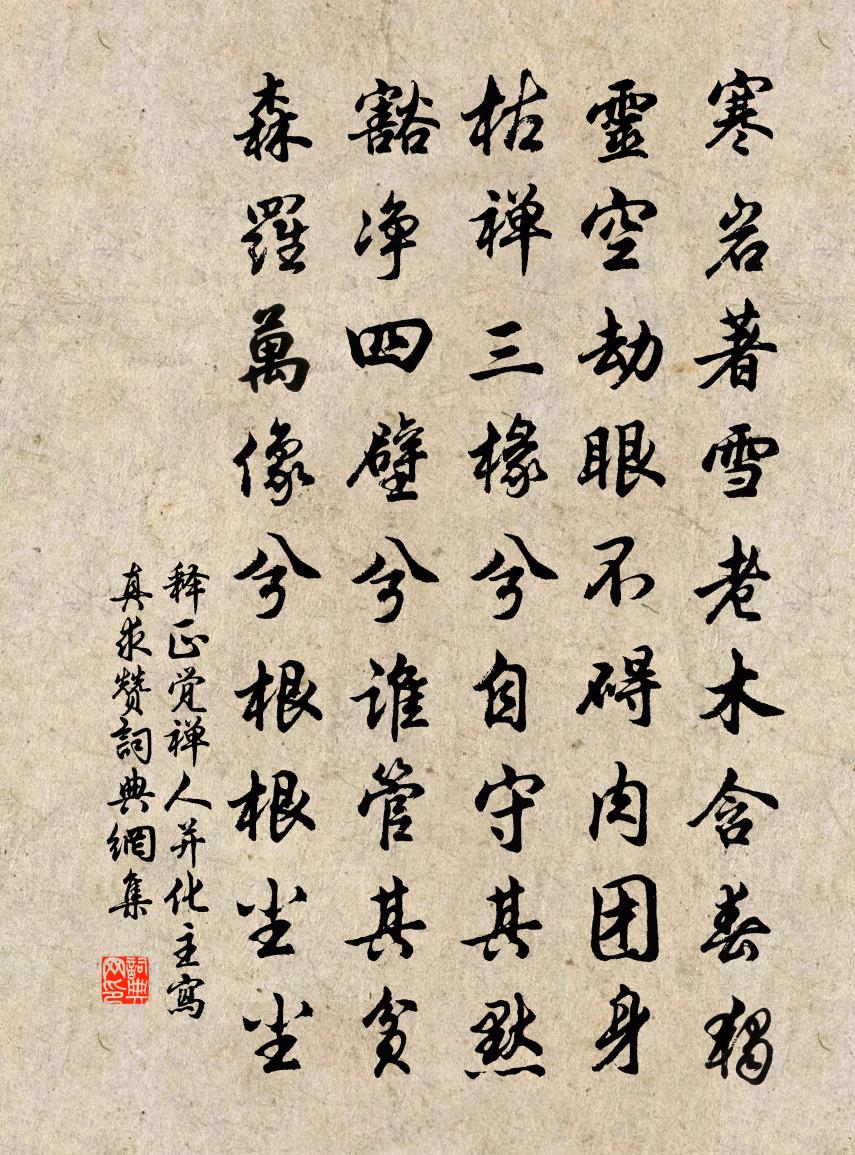 寒岩著雪老木含春獨
靈空劫眼不碍肉团身
枯禅三椽兮自守其默
豁净四壁兮谁管其貧
森羅萬像兮根根尘尘
释正觉禅人并化主寫
真求赞詞典網集
詞典网印